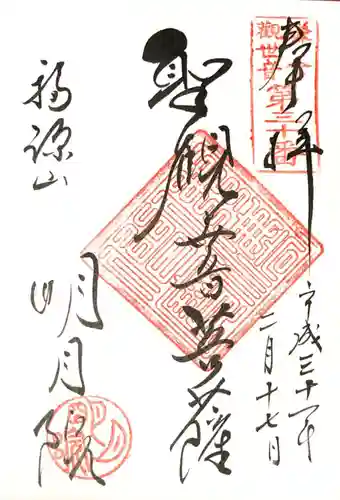 奉拝
鎌倉
觀世音第三十番
平成三十一年
二月十七日
聖観世音菩薩
福源山
明月院